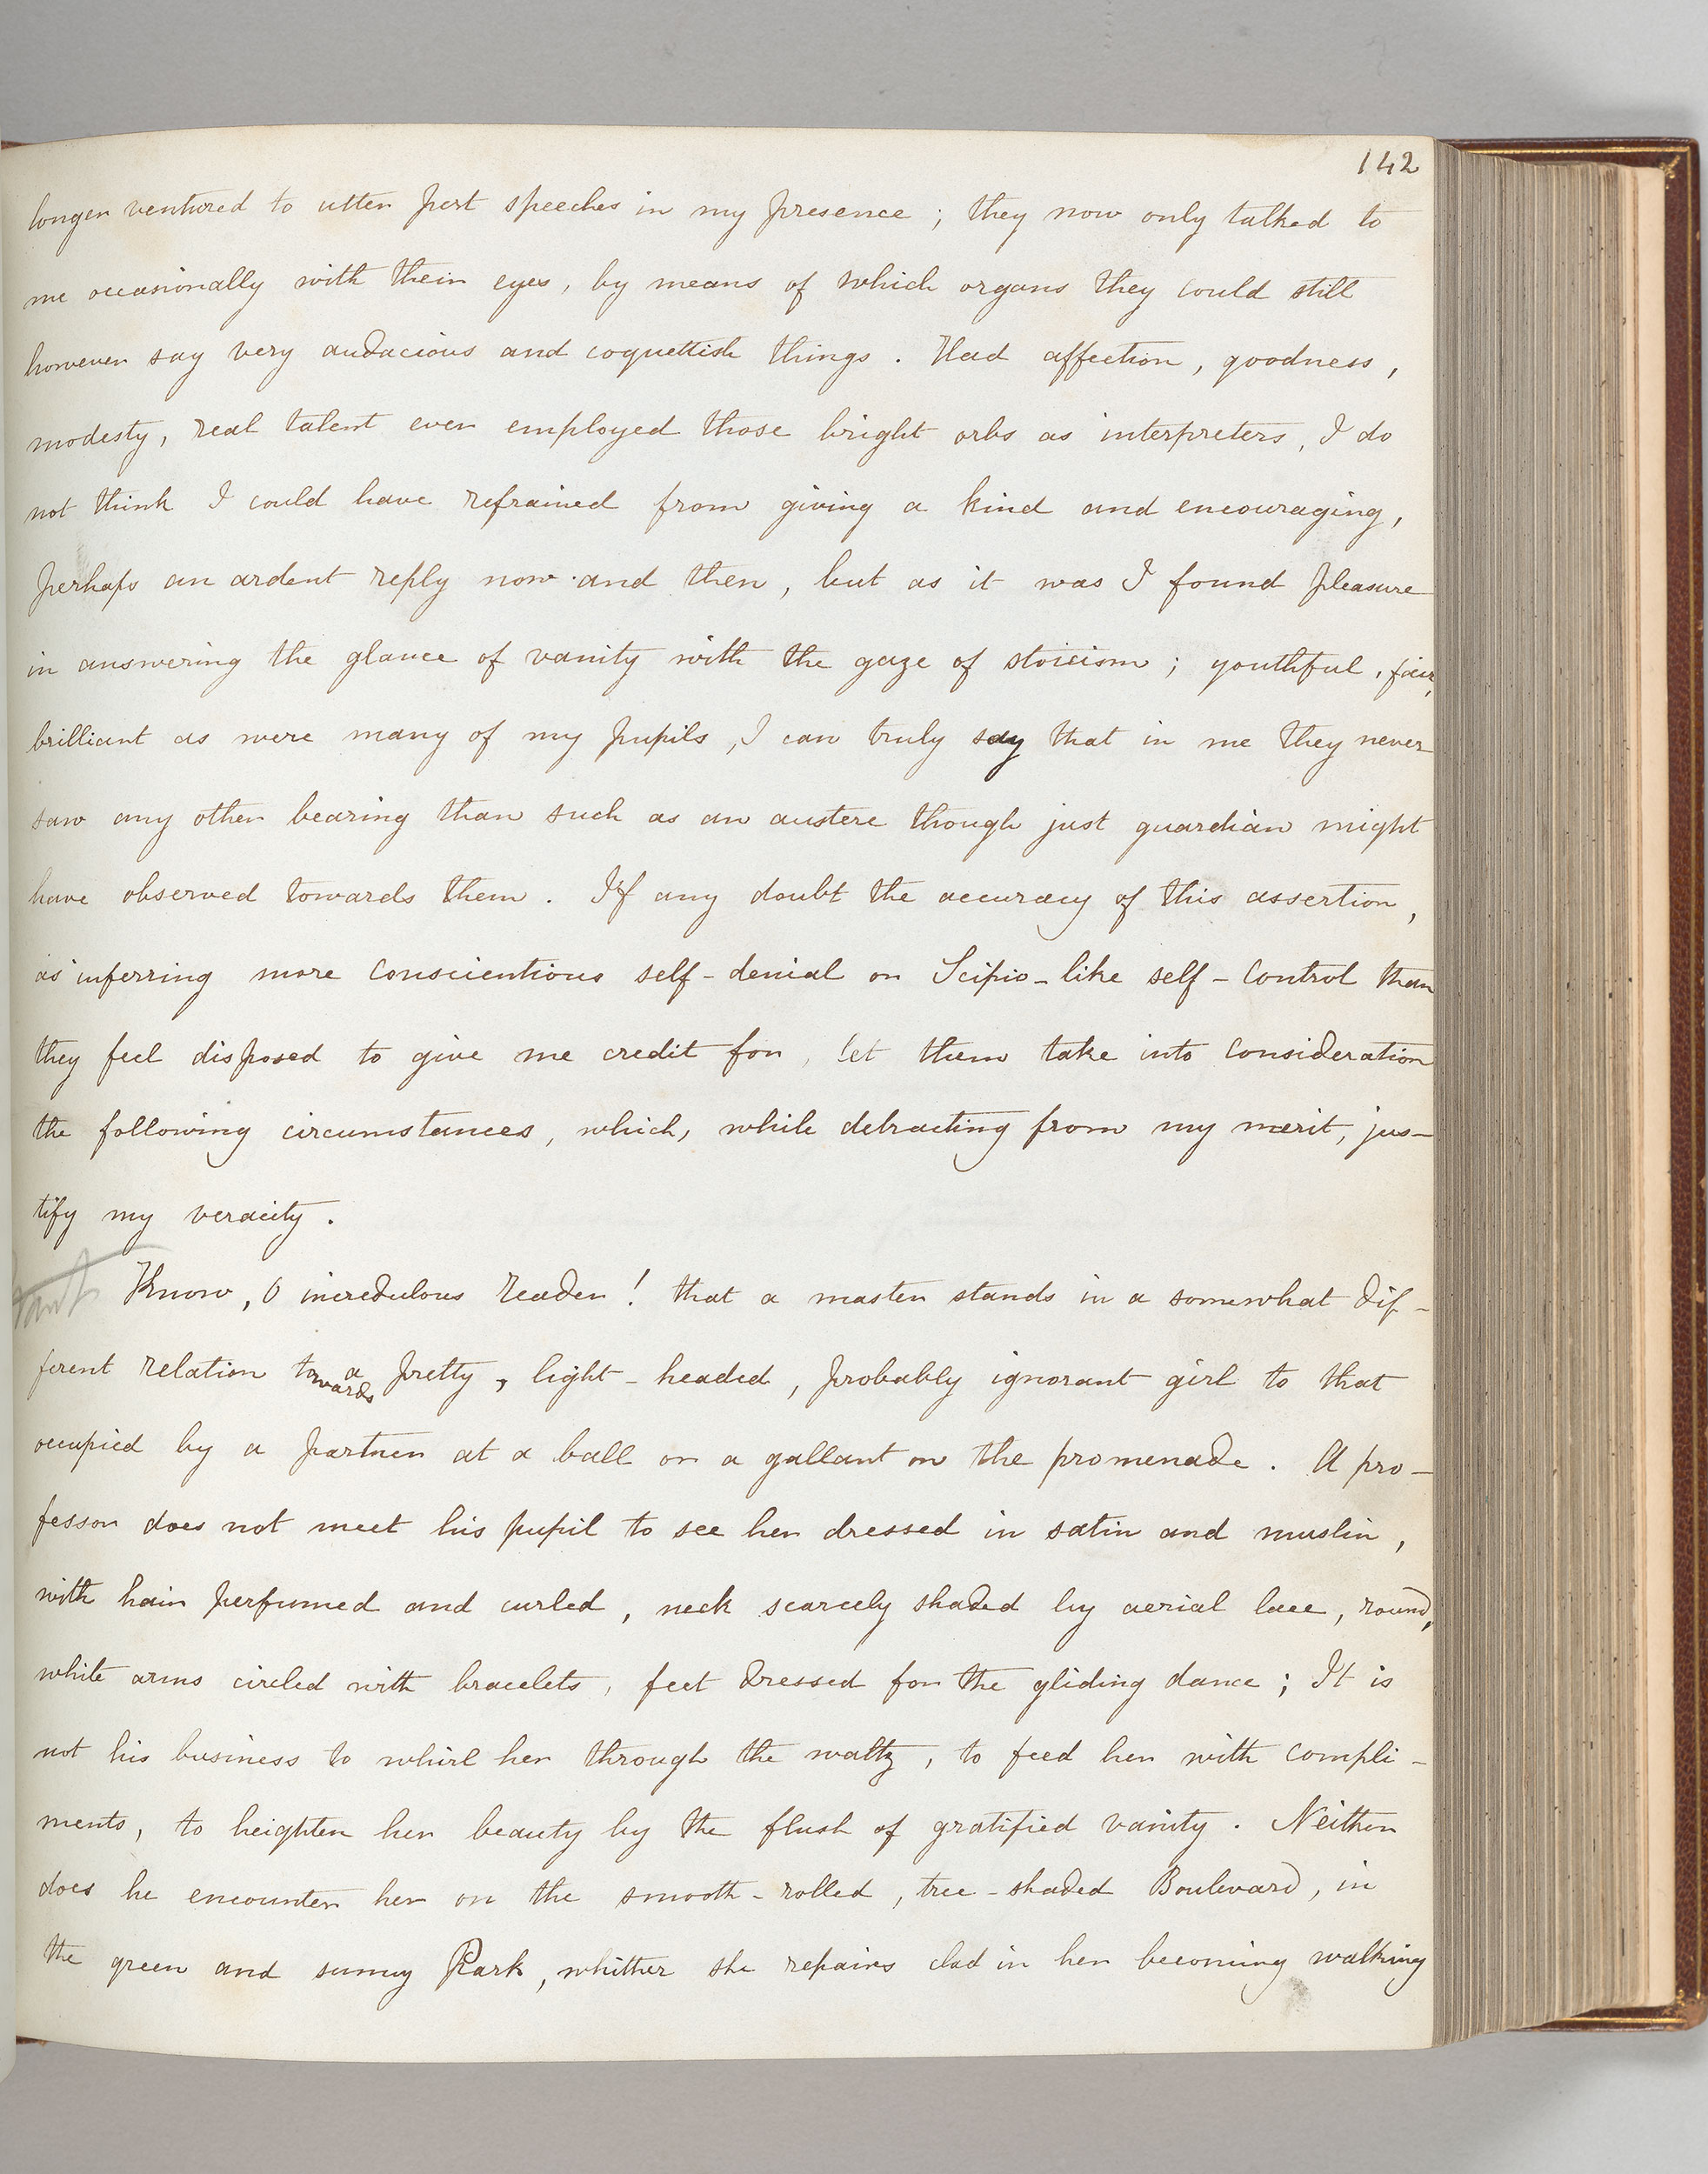 142
longer ventured to utter pert speeches in my presence ; they now only talked to
me occasionally with their eyes, by means of which organs they could still
however say very audacious and coquettish things . Had affection, goodness,
modesty, real talent ever employed those bright orbs as interpreters, I do
not think I could have refrained from giving a kind and encouraging,
perhaps an ardent reply now and then, but as it was I found pleasure
in answering the glance of vanity with the gaze of stoicism ; youthful, fair,
brilliant as were many of my pupils, I can truly say that in me they never
saw any other bearing than such as an austere though just guardian might
have observed towards them . If any doubt the accuracy of this assertion,
as inferring more conscientious self-denial or Scipio-like self-control than
they feel disposed to give me credit for, let them take into consideration
the following circumstances, which, while detracting from my merit, jus-
tify my veracity .
Know, O incredulous reader ! that a master stands in a somewhat dif-
ferent relation towards a pretty, light-headed, probably ignorant girl to that
occupied by a partner at a ball or a gallant on the promenade . A pro-
fessor does not meet his pupil to see her dressed in satin and muslin,
with hair perfumed and curled, neck scarcely shaded by aerial lace, round,
white arms circled with bracelets, feet dressed for the gliding dance ; It is
not his business to whirl her through the waltz, to feed her with compli-
ments, to heighten her beauty by the flush of gratified vanity . Neither
does he encounter her on the smooth-rolled, tree-shaded Boulevard, in
the green and sunny Park, whither she repairs clad in her becoming walking